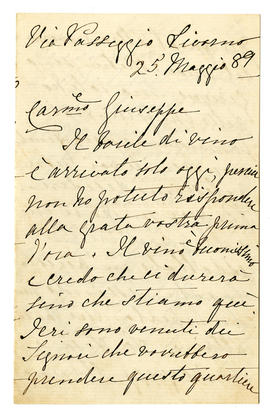 Via Passeggio Livorno
25 Maggio 89
Carmo Giuseppe
Il barile di vino
è arrivato solo oggi, perciò
non ho potuto rispondere
alla grata vostra prima
d'ora. Il vino è buonissimo
e credo che ci durerà
sino che stiamo quì.
Ieri sono venuti dei
Signori che vorrebbero
prendere questo quartiere